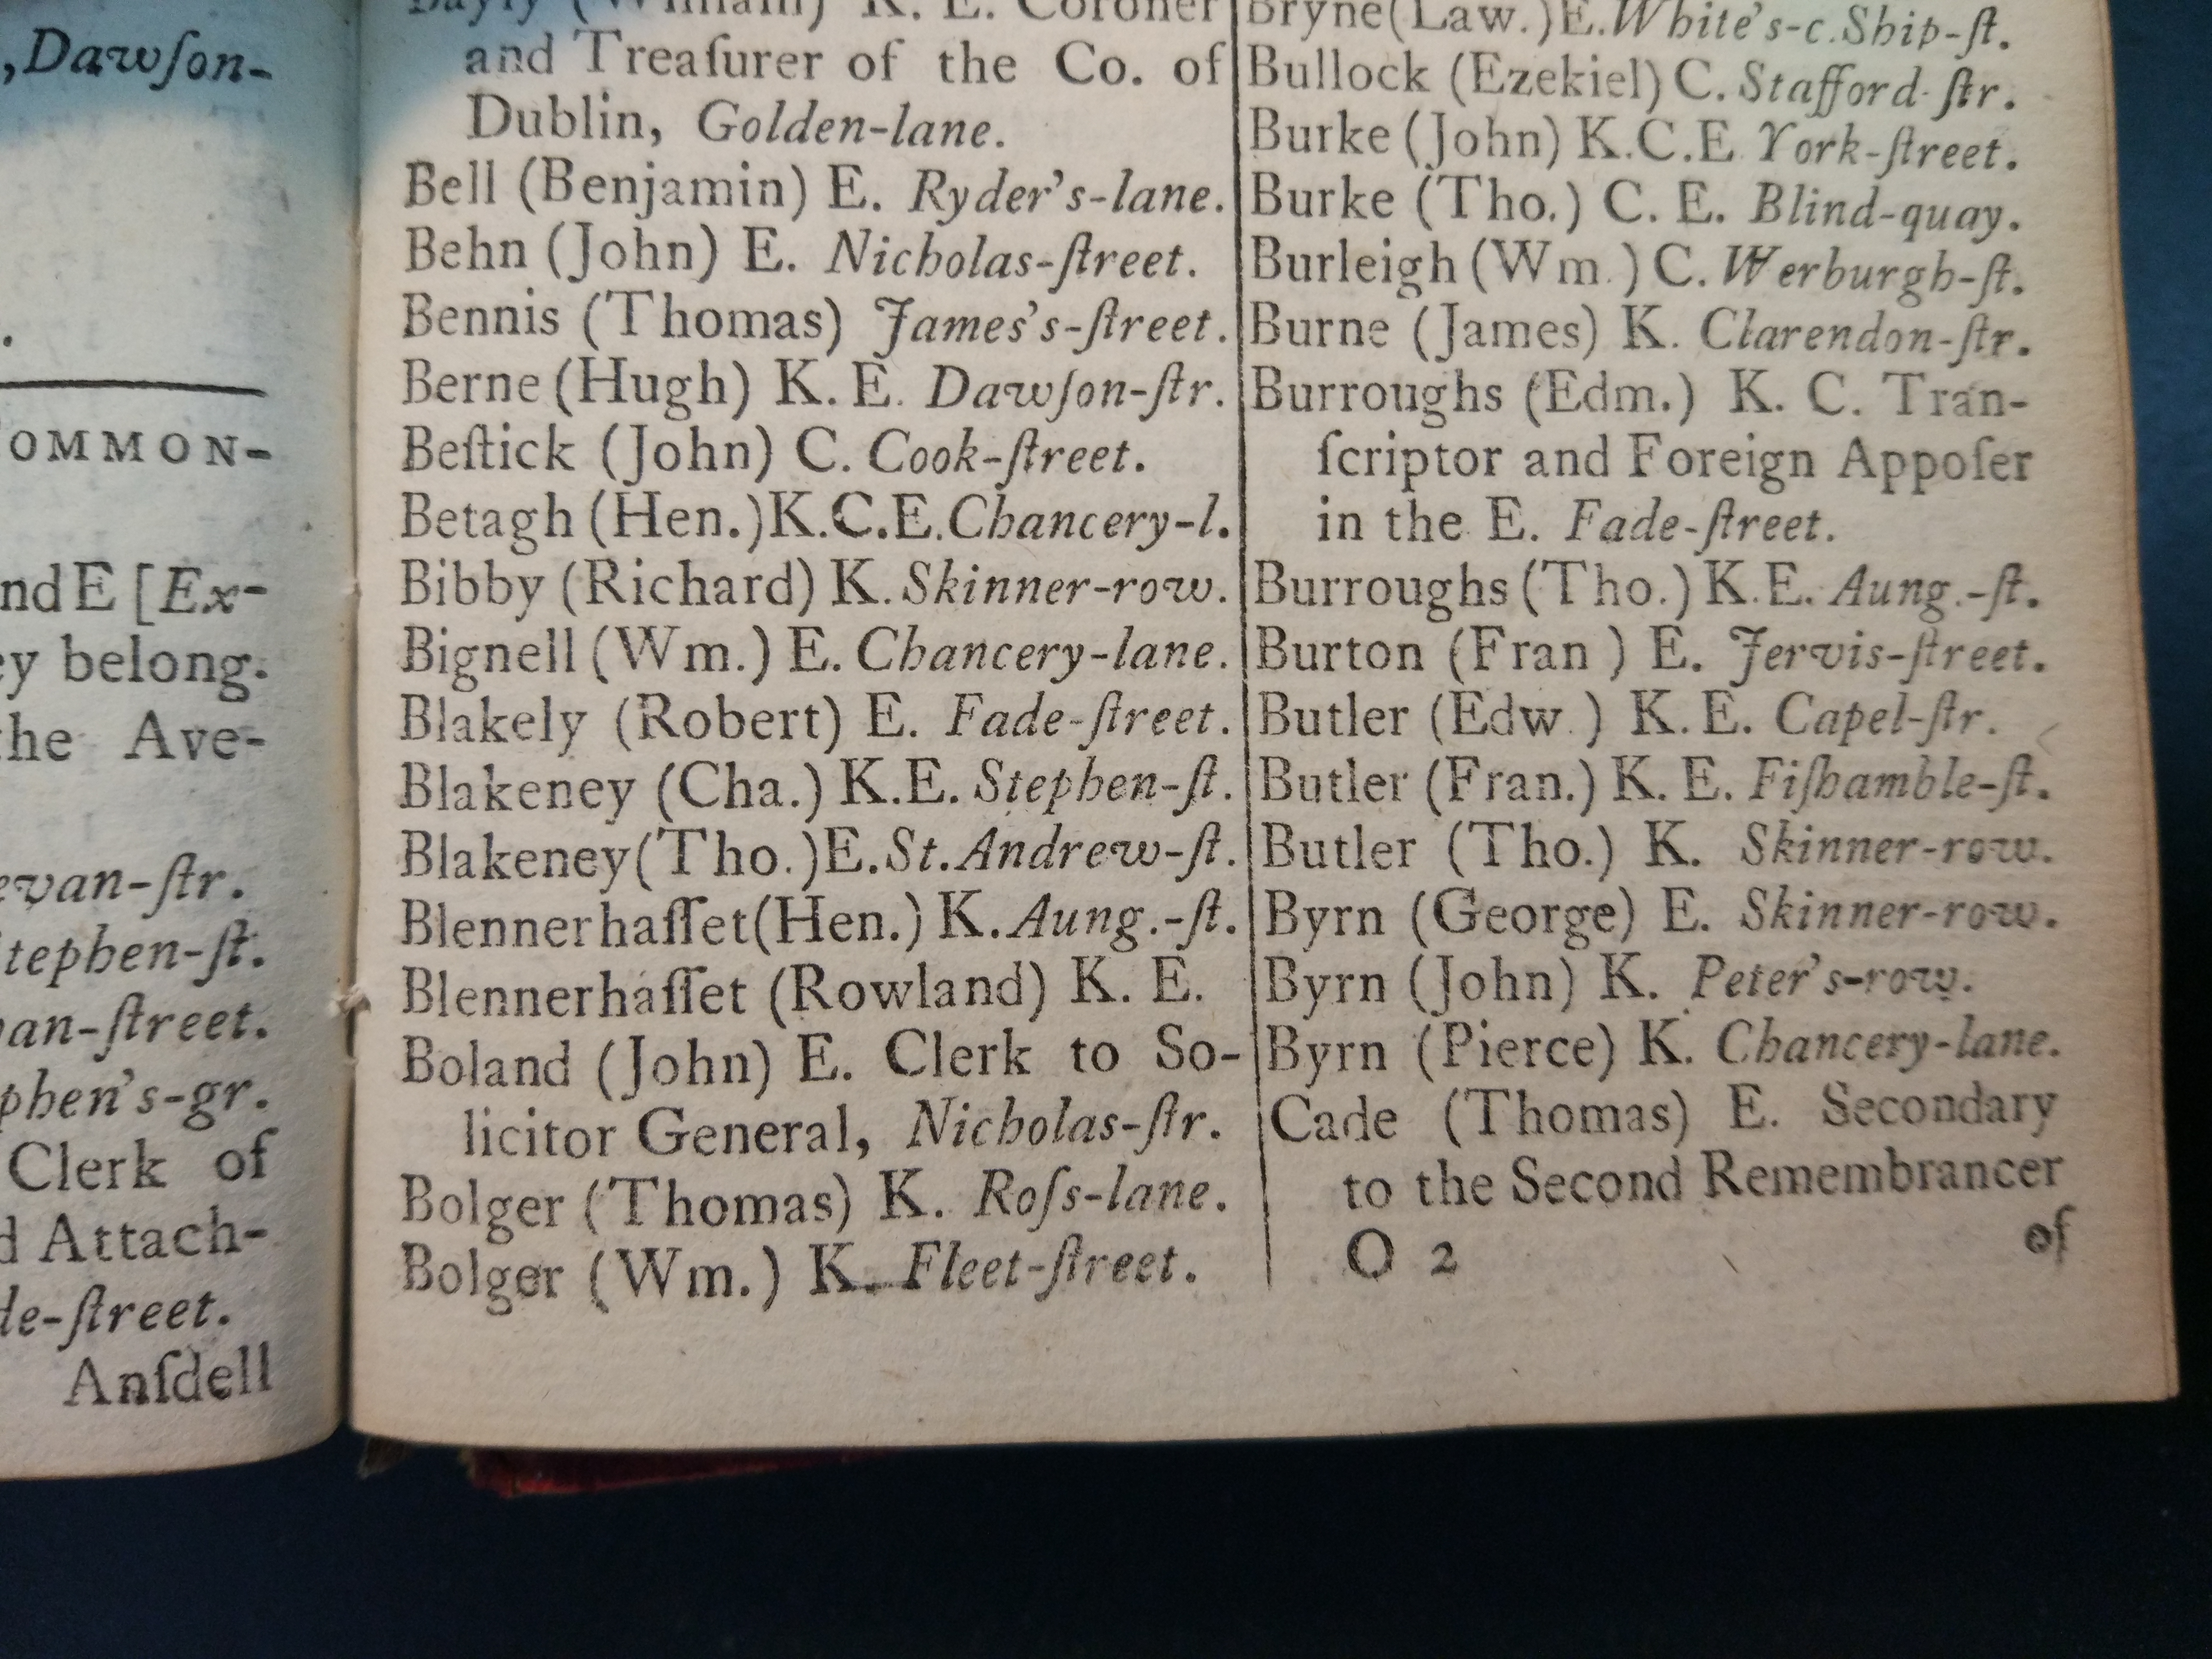 ,Dawſon-
.
OMMON-
nd E [Ex-
ey belong.
the Ave-
evan-ſtr.
Stephen-ſt.
an-ſtreet.
phen's-gr.
Clerk of
d Attach-
de-ſtreet.
Anſdell
Bayly (William) K. E. Coroner
and Treaſurer of the Co. of
Dublin, Golden-lane.
Bell (Benjamin) E. Ryder's-lane.
Behn (John) E. Nicholas-ſtreet.
Bennis (Thomas) James's-ſtreet.
Berne (Hugh) K. E. Dawſon-ſtr.
Beſtick (John) C. Cook-ſtreet.
Betagh (Hen.) K.C.E. Chancery-l.
Bibby (Richard) K. Skinner-row.
Bignell (Wm.) E. Chancery-lane.
Blakely (Robert) E. Fade-ſtreet.
Blakeney (Cha.) K.E. Stephen-ſt.
Blakeney (Tho.) E. St. Andrew-ſt.
Blennerhaſſet (Hen.) K. Aung.-ſt.
Blennerhaſſet (Rowland) K. E.
Boland (John) E. Clerk to So-
licitor General, Nicholas-ſtr.
Bolger (Thomas) K. Roſs-lane.
Bolger (Wm.) K. Fleet-ſtreet.
Bryne (Law.) E. White's-c. Ship-ſt.
Bullock (Ezekiel) C. Stafford-ſtr.
Burke (John) K.C.E York-ſtreet.
Burke (Tho.) C. E. Blind-quay.
Burleigh (Wm.) C. Werburgh-ſt.
Burne (James) K. Clarendon-ſtr.
Burroughs (Edm.) K. C. Tran-
ſcriptor and Foreign Appoſer
in the E. Fade-ſtreet.
Burroughs (Tho.) K.E. Aung.-ſt.
Burton (Fran ) E. Jervis-ſtreet.
Butler (Edw.) K. E. Capel-ſtr.
Butler (Fran.) K. E. Fiſhamble-ſt.
Butler (Tho.) K. Skinner-row.
Byrn (George) E. Skinner-row.
Byrn (John) K. Peter's-row.
Byrn (Pierce) K. Chancery-lane.
Cade (Thomas) E. Secondary
to the Second Remembrancer
O 2 of